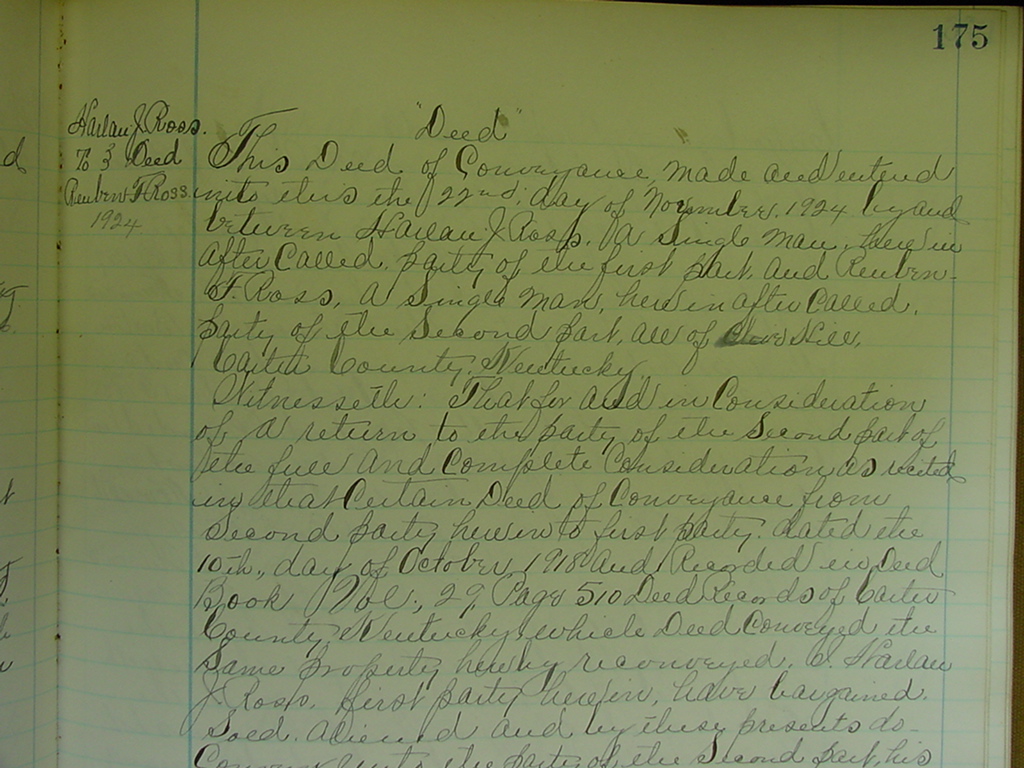 175
Harlan J. Ross.
To } Deed
Reuben F Ross
1924
"Deed"
This Deed of Conveyance, made and entered
unto this the 22nd. day of November, 1924 by and
between Harlan J. Ross, (a single man, herein
after Called, party of the first part, and Reuben-
F. Ross, a single man, herein after Called,
party of the Second part, all of Olive Hill,
Carter County, Kentucky,
Witnesseth: That for and in Consideration
of a return to the party of the Second part of
the full and Complete Consideration as recited
in that Certain Deed of Conveyance from
second party herein to first party. dated the
10th., day of October, 1918 and Recorded in Deed
Book Vol., 29, Page 510 Deed Records of Carter
County, Kentucky, which Deed Conveyed the
same property hereby reconveyed, I. Harlan
J. Ross, first party herein, have bargained.
Sold. aliened and by these presents do-
Convey unto the party of the Second part, his